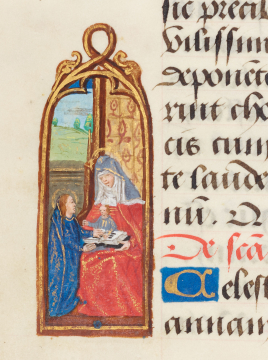 sic precib
vilissim
deponet
rint che
cis cum
te laude
nu. O
De sca
Celest
annam